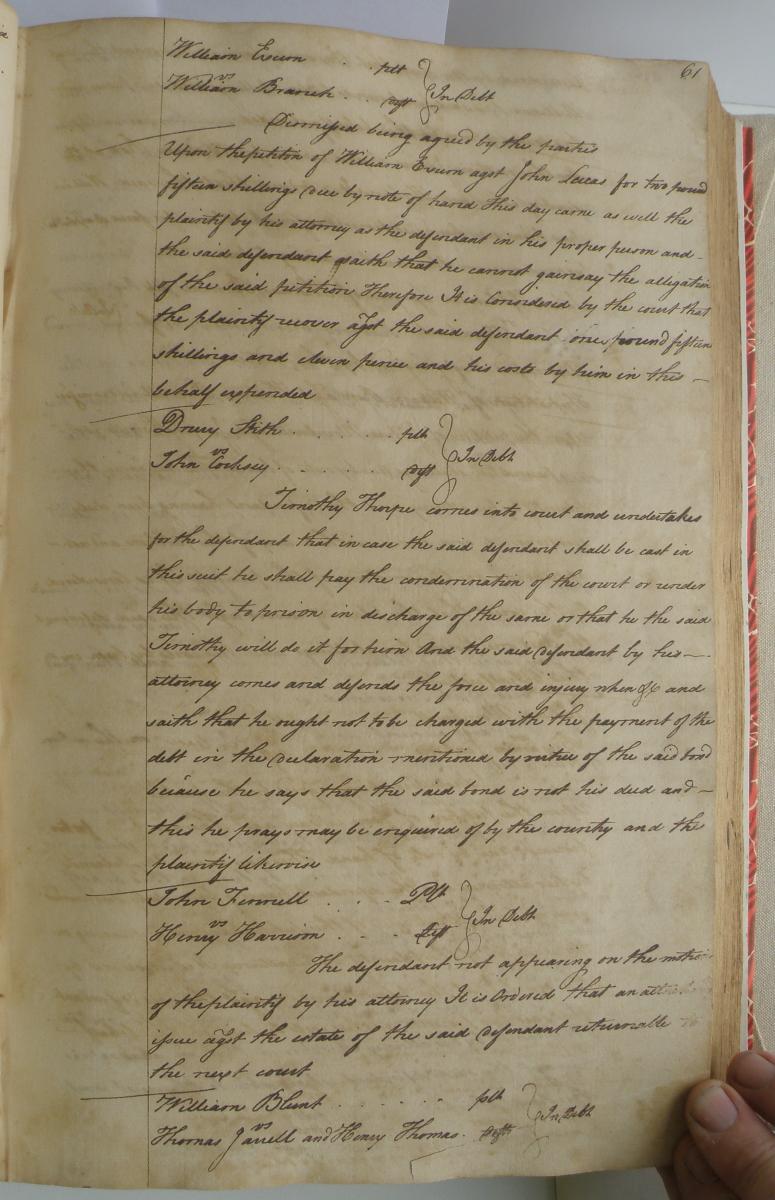 61
William Exum . . plt
vs } In Debt
William Branch . . deft
Dismissed being agreed by the parties
Upon the petition of William Exum agst John Lucas for two pound
fifteen shillings due by note of hand This day came as well the
plaintif by his attorney as the defendant in his proper person and
the said defendant saith that he cannot gainsay the allegation
of the said petition Therefore It is Considered by the court that
the plaintif recover agst the said defendant one pound fifteen
shillings and eleven pence and his costs by him in this
behalf expended
Drury Stith . . . . . plt
vs } In Debt
John Cocksey . . . . . deft
Timothy Thorpe comes into court and undertakes
for the defendant that in case the said defendant shall be cast in
this suit he shall pay the condemnation of the court or render
his body to prison in discharge of the same or that he the said
Timothy will do it for him And the said defendant by his
attorney comes and defends the force and injury when &c and
saith that he ought not to be charged with the payment of the
debt in the declaration mentioned by virtue of the said bond
because he says that the said bond is not his deed and
this he prays may be enquired of by the country and the
plaintif likewise
John Fennell . . . Plt
vs } In Debt
Henry Harrison . . . deft
The defendant not appearing on the motion
of the plaintif by his attorney It is Ordered that an
issue agst the estate of the said defendant returnable to
the next court
William Blunt . . . . . . plt
vs } In Debt
Thomas Jarrell and Henry Thomas . defts